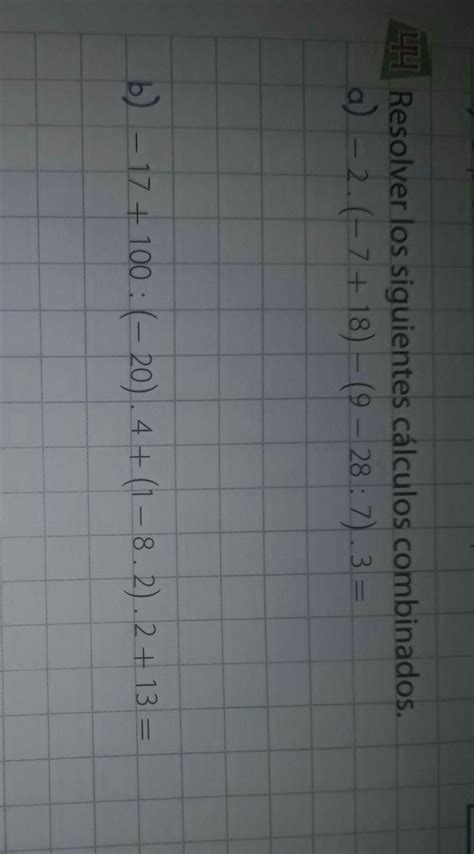 44 Resolver los siguientes cálculos combinados.
a) – 2 . (– 7 + 18) – (9 – 28 : 7) . 3 =
b) – 17 + 100 : (– 20) . 4 + (1 – 8 . 2) . 2 + 13 =